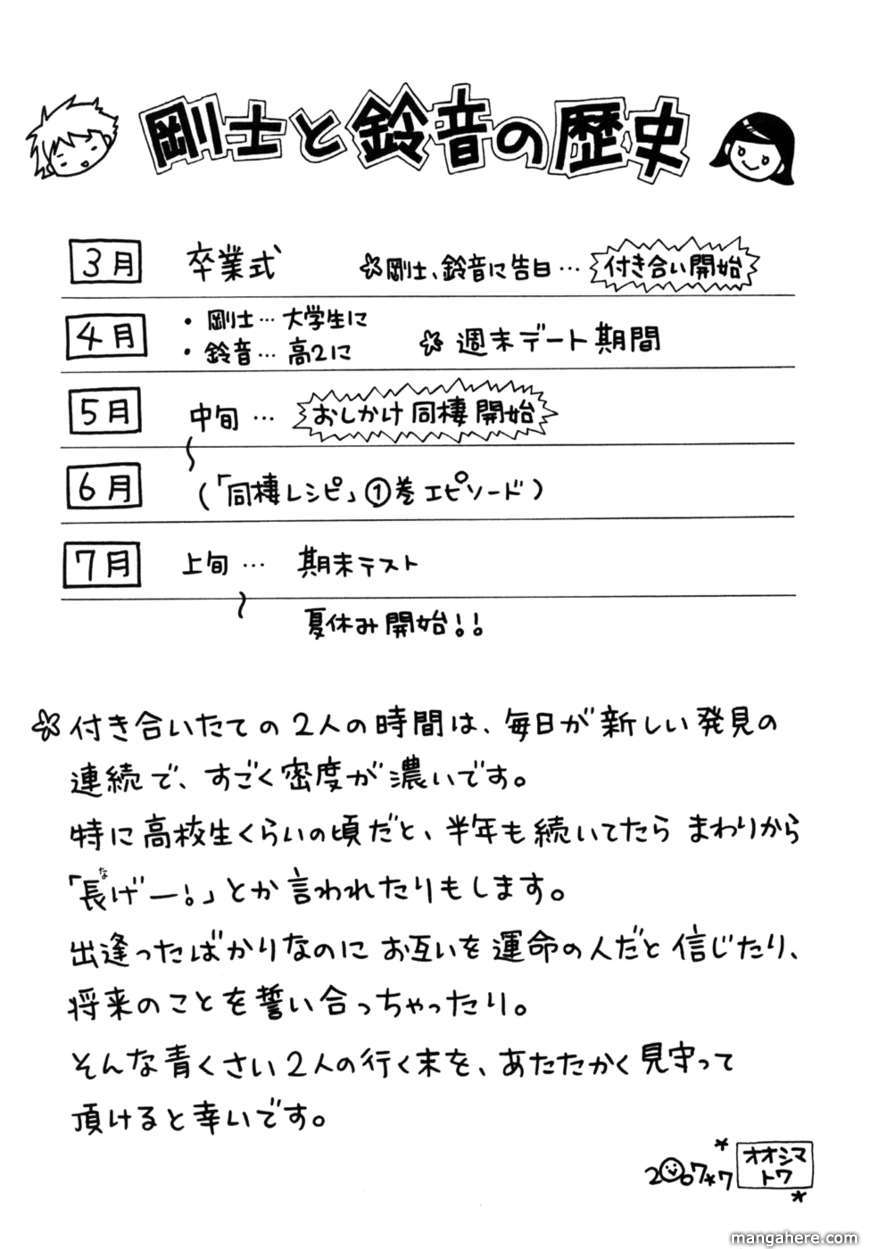 剛士と鈴音の歴史
3月 卒業式 ☆剛士、鈴音に告白… 付き合い開始
4月 ・剛士…大学生に
・鈴音…高2に ☆週末デート期間
5月 中旬… おしかけ同棲開始
〜
6月 (「同棲レシピ」①巻エピソード)
7月 上旬… 期末テスト
〜 夏休み開始!!
☆付き合いたての2人の時間は、毎日が新しい発見の
連続で、すごく密度が濃いです。
特に高校生くらいの頃だと、半年も続いてたら まわりから
「長げー!」とか言われたりもします。
な
出逢ったばかりなのに お互いを運命の人だと信じたり、
将来のことを誓い合っちゃったり。
そんな青くさい2人の行く末を、あたたかく見守って
頂けると幸いです。
2007*7 オオシマ
トワ
mangahere.com